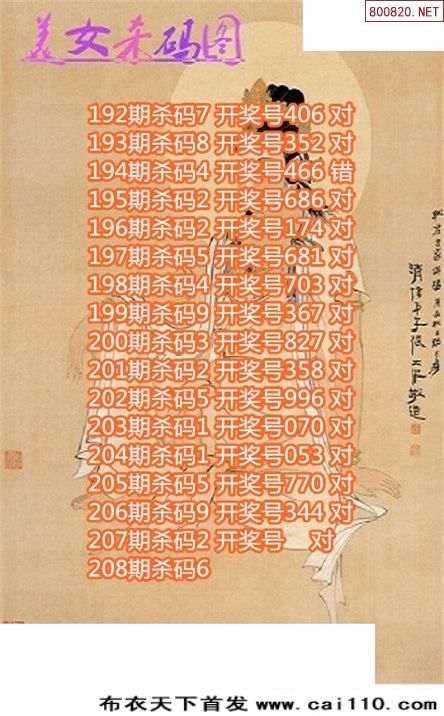 800820.NET
美女杀码图
192期杀码7 开奖号406 对
193期杀码8 开奖号352 对
194期杀码4 开奖号466 错
195期杀码2 开奖号686 对
196期杀码2 开奖号174 对
197期杀码5 开奖号681 对
198期杀码4 开奖号703 对
199期杀码9 开奖号367 对
200期杀码3 开奖号827 对
201期杀码2 开奖号358 对
202期杀码5 开奖号996 对
203期杀码1 开奖号070 对
204期杀码1 开奖号053 对
205期杀码5 开奖号770 对
206期杀码9 开奖号344 对
207期杀码2 开奖号 对
208期杀码6
布衣天下首发 www.cai110.com